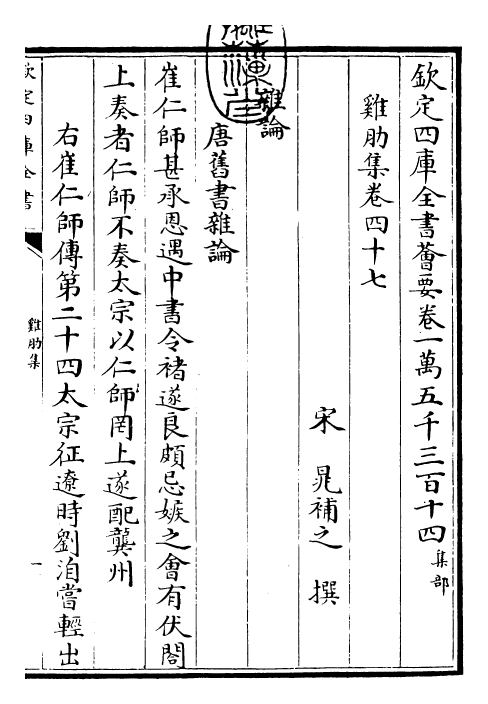 欽定四庫全書薈要卷一萬五千三百十四 集部
雞肋集卷四十七
宋 晁補之 撰
雜論
唐舊書雜論
崔仁師甚承恩遇中書令褚遂良頗忌嫉之會有伏閤
上奏者仁師不奏太宗以仁師罔上遂配龔州
右崔仁師傳第二十四太宗征遼時劉洎嘗輕出
欽定四庫全書
雞肋集
一